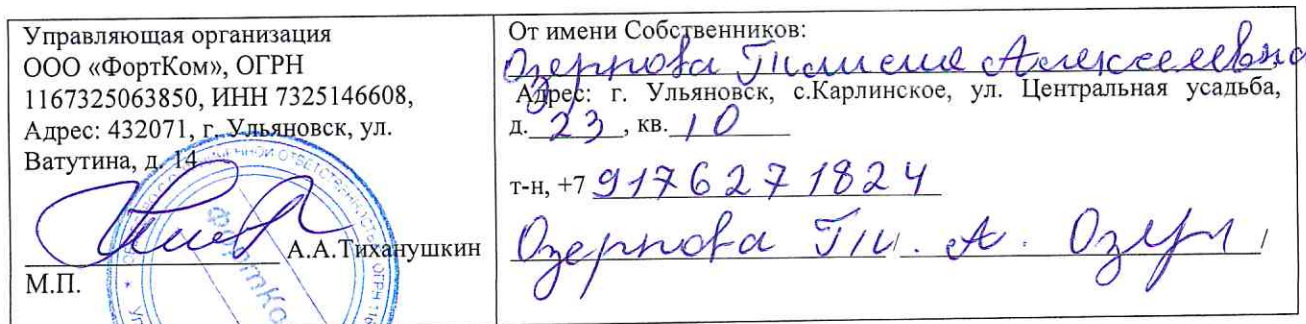 Управляющая организация
ООО «ФортКом», ОГРН
1167325063850, ИНН 7325146608,
Адрес: 432071, г. Ульяновск, ул.
Ватутина, д. 14
А.А.Тиханушкин
М.П.
ФортКо
От имени Собственников:
Озернова Алексеевна
Адрес: г. Ульяновск, с.Карлинское, ул. Центральная усадьба,
д. 23, кв. 10
т-н, +7 9176271824
Озернова А.